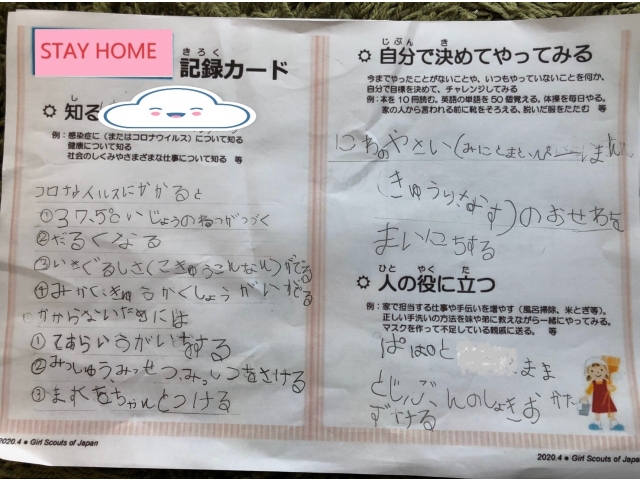 STAY HOME
きろく
記録カード
し
知る
例：感染症に（またはコロナウイルス）について知る
健康について知る
社会のしくみやさまざまな仕事について知る　等
コロナウイルスにかかると
①37.5℃いじょうのねつがつづく
②だるくなる
③いきぐるしさ(こきゅうこんなん)がでる
④みかく、きゅうかくしょうがいがでる
かからないためには
①てあらいうがいをする
②みっしゅうみっせつ、みっしつをさける
③ますくをちゃんとつける
2020.4 ● Girl Scouts of Japan
じぶん　き
自分で決めてやってみる
今までやったことがないことや、いつもやっていないことを何か、
自分で目標を決めて、チャレンジしてみる
例：本を10冊読む。英語の単語を50個覚える。体操を毎日やる。
家の人から言われる前に靴をそろえる、脱いだ服をたたむ　等
にわのやさい(みにとまと、ぴーまん
きゅうり、なす)のおせわを
まいにちする
ひと　やく　た
人の役に立つ
例：家で担当する仕事や手伝いを増やす（風呂掃除、米とぎ等）。
正しい手洗いの方法を妹や弟に教えながら一緒にやってみる。
マスクを作って不足している親戚に送る。　等
ぱぱと
まま
とじぶんのしょっきお　かた
ずける
2020.4 ● Girl Scouts of Japa